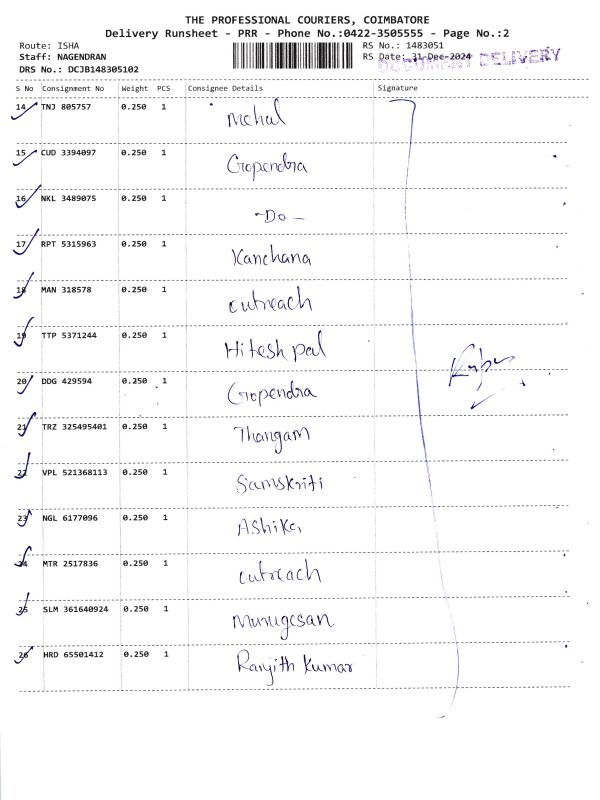 THE PROFESSIONAL COURIERS, COIMBATORE
Delivery Runsheet - PRR - Phone No.:0422-3505555 - Page No.:2
Route: ISHA RS No.: 1483051
Staff: NAGENDRAN RS Date: 31-Dec-2024
DRS No.: DCJB148305102 DOCUMENT DELIVERY
S No Consignment No Weight PCS Consignee Details Signature
14 TNJ 805757 0.250 1 Mehul
15 CUD 3394097 0.250 1 Gropendra
16 NKL 3489075 0.250 1 -Do-
17 RPT 5315963 0.250 1 Kanchana
18 MAN 318578 0.250 1 outreach
19 TTP 5371244 0.250 1 Hitesh pal
20 DDG 429594 0.250 1 Gropendra
21 TRZ 325495401 0.250 1 Thangam
22 VPL 521368113 0.250 1 Samskriti
23 NGL 6177096 0.250 1 Ashika
24 MTR 2517836 0.250 1 outreach
25 SLM 361640924 0.250 1 Murugesan
26 HRD 65501412 0.250 1 Ranjith Kumar